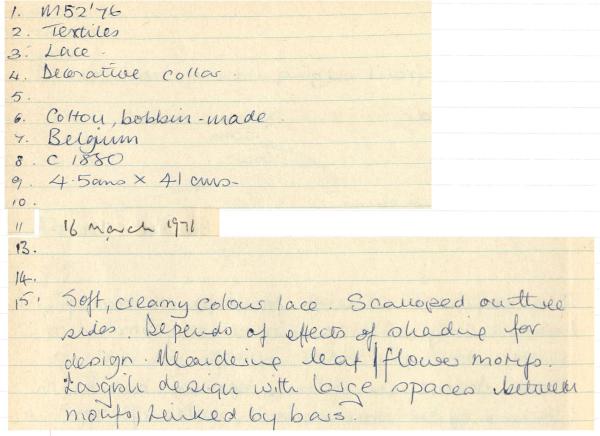 1. M52'76
2. Textiles
3. Lace.
4. Decorative collar.
5.
6. Cotton, bobbin-made.
7. Belgium
8. C 1880
9. 4.5cms × 41 cms.
10.
11 16 March 1971
13.
14.
15. Soft, creamy colour lace. Scalloped on three
sides. Depends of effects of shading for
design. Meandering leaf/flower motifs.
Largish design with large spaces between
motifs, linked by bars.